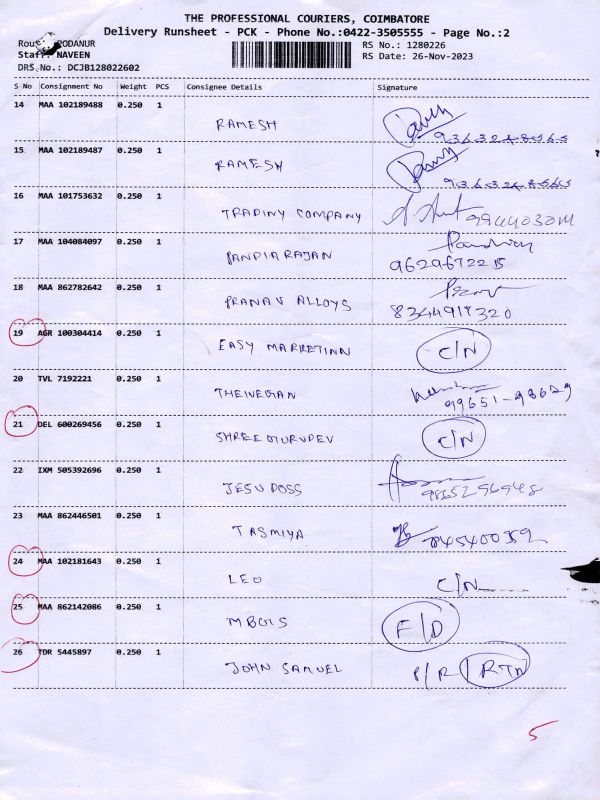 THE PROFESSIONAL COURIERS, COIMBATORE
Delivery Runsheet - PCK - Phone No.:0422-3505555 - Page No.:2
PODANUR
RS No.: 1280226
NAVEEN
RS Date: 26-Nov-2023
DRS No.: DCJB128022602
S No Consignment No Weight PCS Consignee Details Signature
14 MAA 102189488 0.250 1
RAMESH
15 MAA 102189487 0.250 1
RAMESH
16 MAA 101753632 0.250 1
TRADINY COMPANY
17 MAA 104084097 0.250 1
PANDIARAJAN
9629672215
18 MAA 862782642 0.250 1
PRANAV ALLOYS 8344917320
19 AGR 100304414 0.250 1
EASY MARKETINN C/N
20 TVL 7192221 0.250 1
99651-98629
21 DEL 600269456 0.250 1
C/N
22 IXM 505392696 0.250 1
JESU DOSS
9865296948
23 MAA 862446501 0.250 1
TASMIYA
24 MAA 102181643 0.250 1
LEO C/N
25 MAA 862142086 0.250 1
F/D
26 TDR 5445897 0.250 1
JOHN SAMUEL P/R/RTN
5